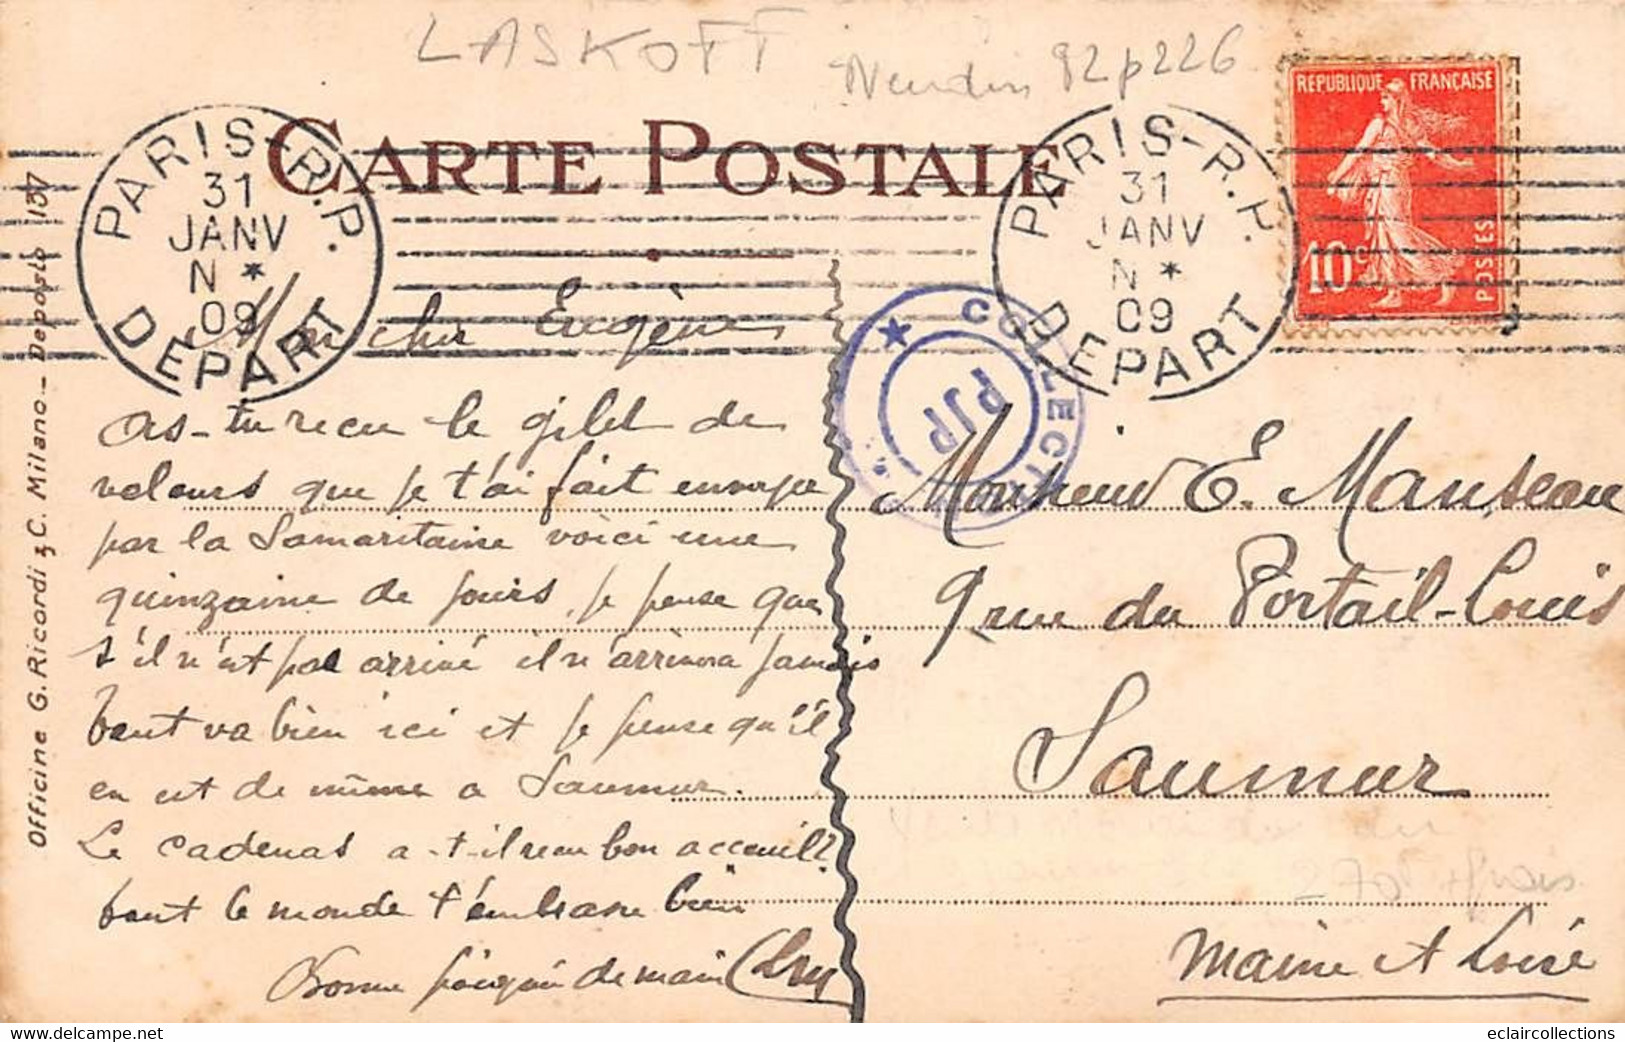 LASKOFF
Neudin 82 p 226
CARTE POSTALE
PARIS-R.P.
31
JANV
N *
09
DEPART
PARIS-R.P.
31
JANV
N *
09
DEPART
REPUBLIQUE FRANÇAISE
10c
POSTES
COLLECTION
PJP
Officine G. Ricordi & C. Milano - Deposto 137
Mon cher Eugène
As-tu recu le gilet de
velours que je t'ai fait envoyer
par la Samaritaine voici une
quinzaine de jours, je pense que
s'il n'est pas arrivé il n'arrivera jamais
tout va bien ici et je pense qu'il
en est de même a Saumur.
Le cadenas a-t-il recu bon acceuil?
tout le monde t'embrasse bien
Bonne poignée de main
Monsieur E. Mauseau
9 rue du Portail-Louis
Saumur
270 + frais
Maine et Loire
eclaircollections